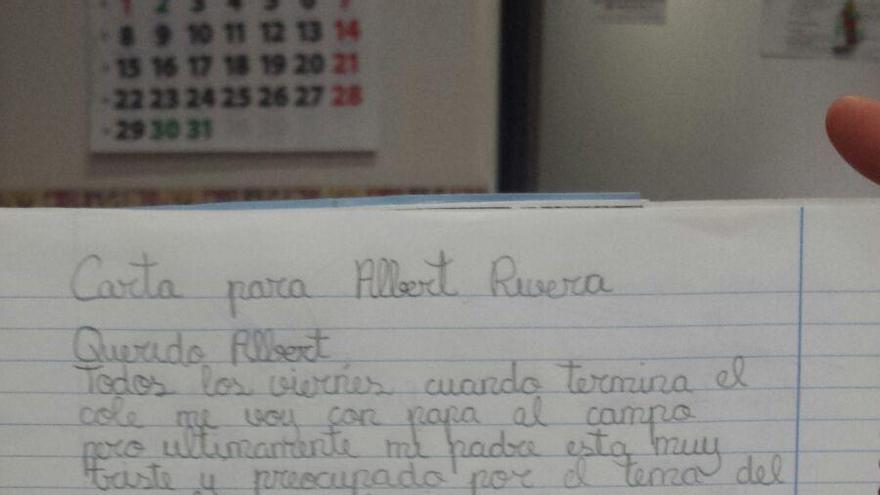 8 9 10 11 12 13 14
15 16 17 18 19 20 21
22 23 24 25 26 27 28
29 30 31
Carta para Albert Rivera
Querido Albert
Todos los viernes cuando termina el
cole me voy con papa al campo
pero ultimamente mi padre esta muy
triste y preocupado por el tema del